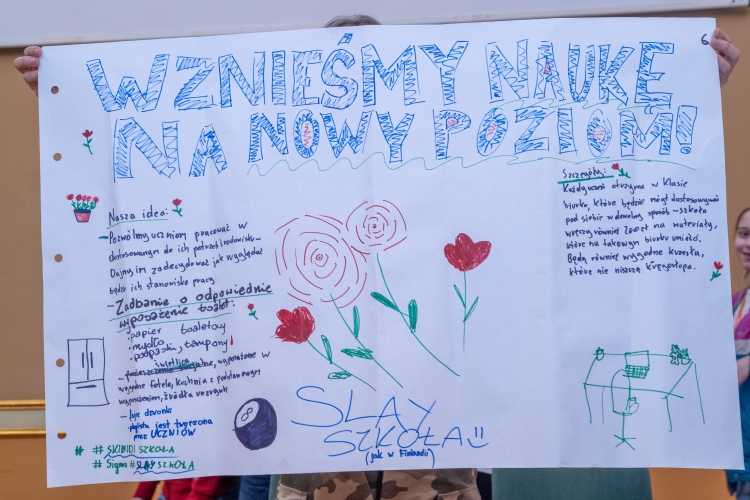 6
WZNIEŚMY NAUKĘ
NA NOWY POZIOM!
Nasza idea:
- Pozwólmy uczniom pracować w
dostosowanym do ich potrzeb środowisku -
Dajmy im zadecydować jak wyglądać
będzie ich stanowisko pracy
- Zadbanie o odpowiednie
wyposażenie toalet:
· papier toaletowy
· mydło
· podpaski, tampony
świetlica
wyposażone w
wygodne fotele, kuchnia z podstawowym
wyposażeniem, źródła rozrywki
- dzwonka
playlista jest tworzona
przez UCZNIÓW
# SKIBIDI SZKOŁA
# Sigma # SLAY SZKOŁA
8
SLAY
SZKOŁA
(jak w Finlandii)
Szczegóły:
Każdy uczeń otrzyma w klasie
biurko, które będzie mógł dostosowywać
pod siebie w dowolny sposób - szkoła
wręczy również 200zł na materiały,
które na takowym biurku umieści.
Będą również wygodne krzesła,
które nie niszczą kręgosłupa.